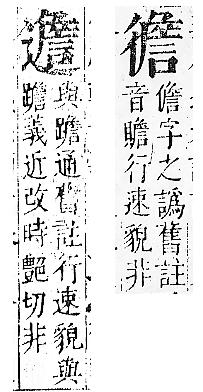 儋字之譌舊註
音瞻行速貌非
與通舊註行速貌與
義近改時艷切非